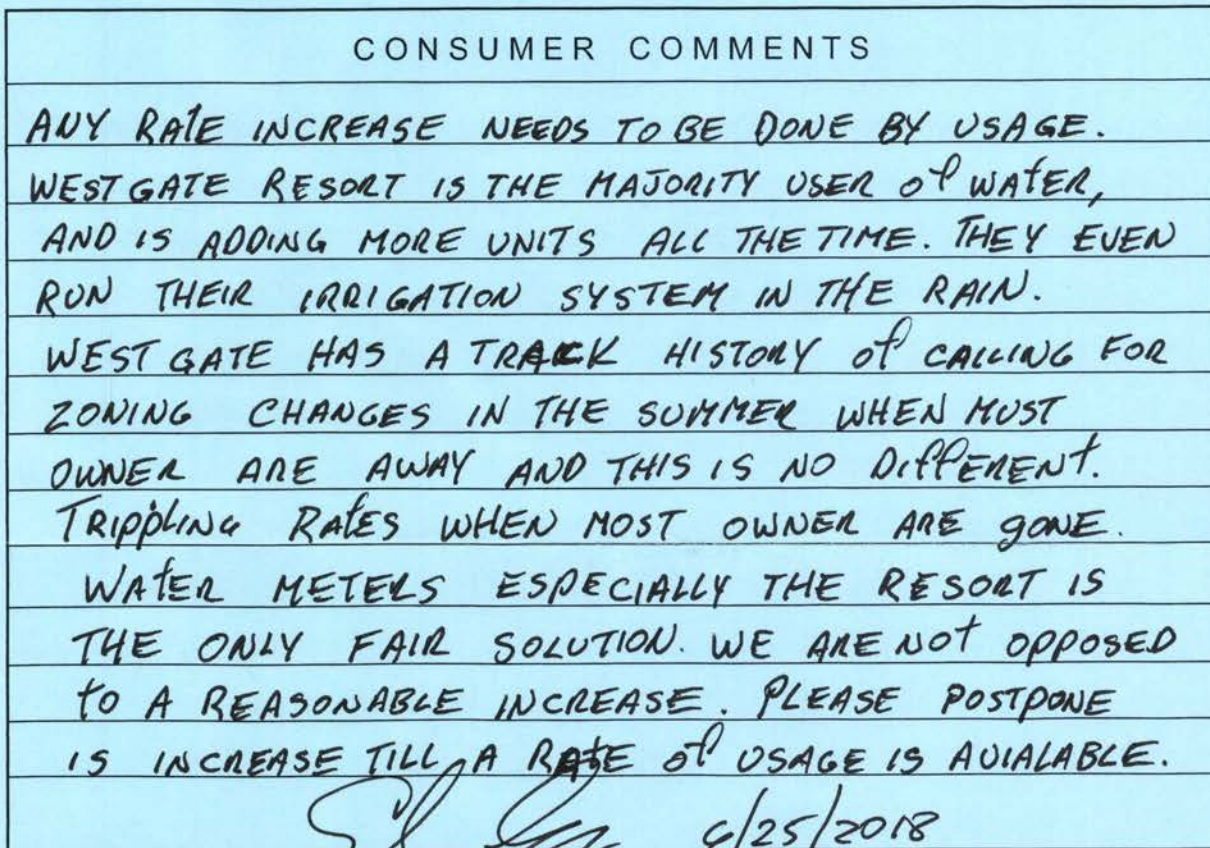 CONSUMER COMMENTS
ANY RATE INCREASE NEEDS TO BE DONE BY USAGE.
WESTGATE RESORT IS THE MAJORITY USER of WATER,
AND IS ADDING MORE UNITS ALL THE TIME. THEY EVEN
RUN THEIR IRRIGATION SYSTEM IN THE RAIN.
WESTGATE HAS A TRACK HISTORY of CALLING FOR
ZONING CHANGES IN THE SUMMER WHEN MUST
OWNER ARE AWAY AND THIS IS NO DIFFERENT.
TRIPPLING RATES WHEN MOST OWNER ARE gONE.
WATER METERS ESPECIALLY THE RESORT IS
THE ONLY FAIR SOLUTION. WE ARE NOT OPPOSED
TO A REASONABLE INCREASE. PLEASE POSTPONE
IS INCREASE TILL A RATE of USAGE IS AVIALABLE.
6/25/2018